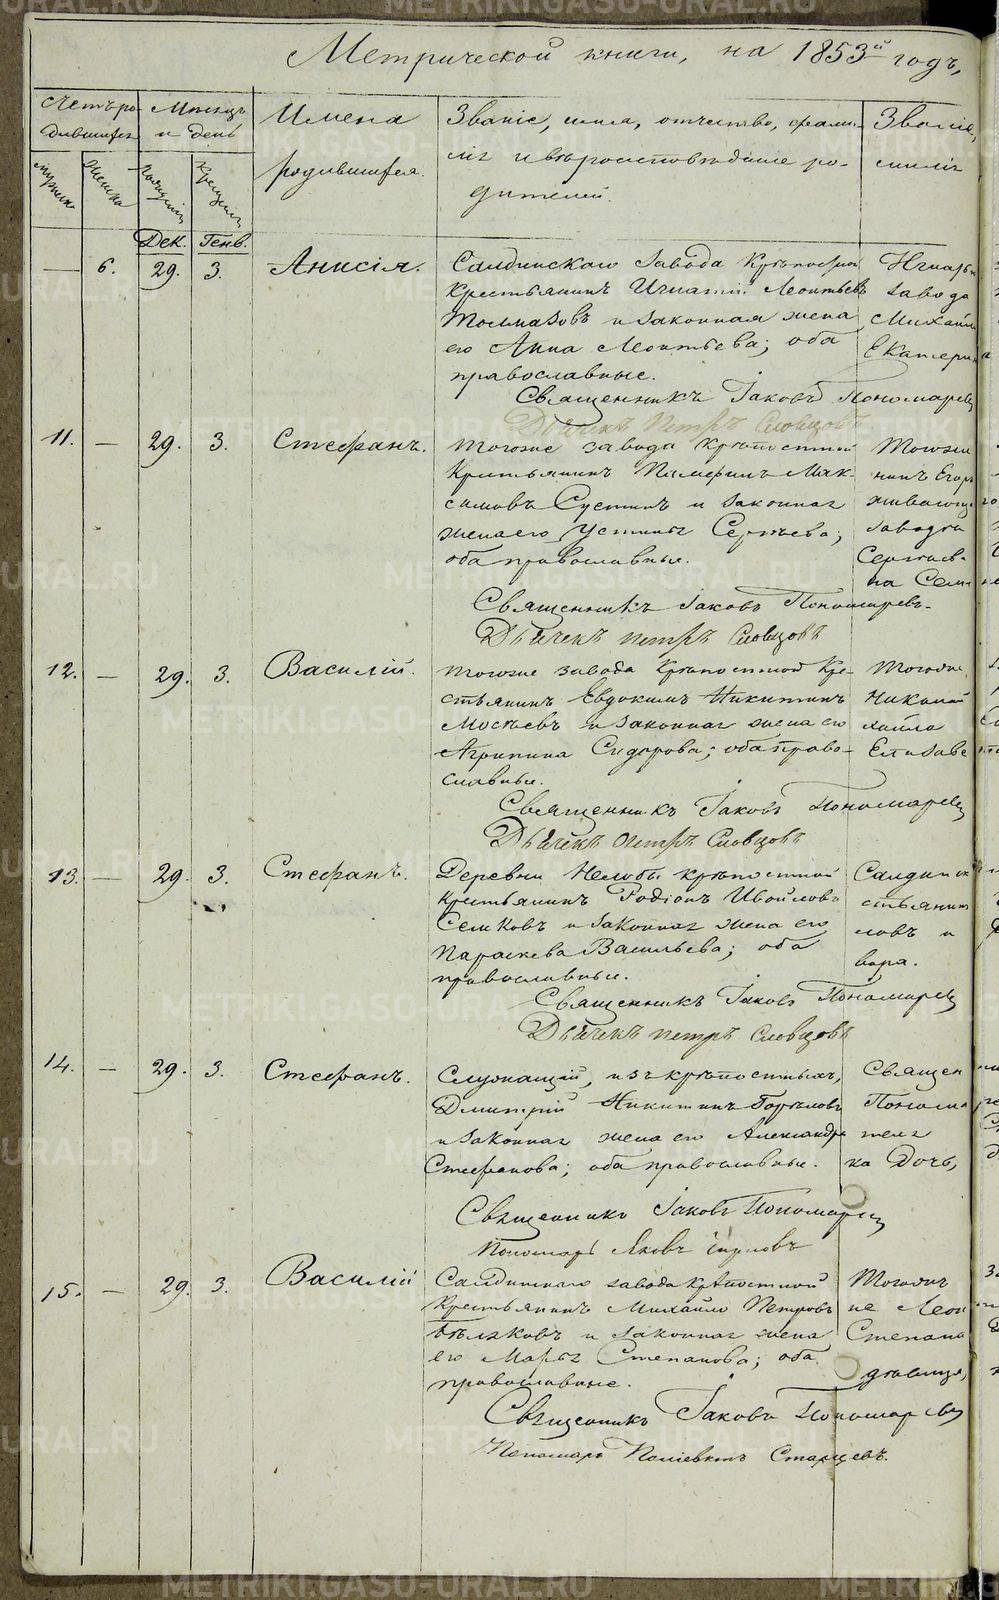 Метрической книги, на 1853й годъ,
Счетъ ро-
дившихся
Мѣсяцъ
и день
Имена
родившихся.
Званіе, имя, отчество, фами-
лія и вѣроисповѣданіе ро-
дителей.
Званіе,
милія
мужеска
женска
рожденія
крещенія
Дек. Генв.
— 6. 29. 3. Анисія.
Салдинскаго завода крѣпостной
крестьянинъ Игнатій Леонтьевъ
Толмазовъ и законная жена
его Анна Леонтьева; оба
православные.
завода
Михайл
Екатерин
Священникъ Іаковъ Пономаревъ
Дьячекъ Петръ Словцовъ
11. — 29. 3. Стефанъ.
Тогоже завода крѣпостной
крестьянинъ Памфилъ Мак-
симовъ Сустинъ и законная
жена его Устинья Сергѣева;
оба православные.
Тогоже
нинъ Егоръ
живающ
завода
Сергѣев-
на Семе
Священникъ Іаковъ Пономаревъ.
Дьячекъ Петръ Словцовъ
12. — 29. 3. Василій.
Тогоже завода крѣпостной кре-
стьянинъ Евдокимъ Никитинъ
Мосѣевъ и законная жена его
Агрипина Сидорова; оба право-
славные.
Тогоже
Николай
хайла
Елизаве
Священникъ Іаковъ Пономаревъ
Дьячекъ Петръ Словцовъ
13. — 29. 3. Стефанъ.
Деревни Нелобы крѣпостной
крестьянинъ Родіонъ Ивойловъ
Семковъ и законная жена его
Параскева Васильева; оба
православные.
Салдинск
стьянин
ловъ и
вара.
Священникъ Іаковъ Пономаревъ
Дьячекъ Петръ Словцовъ
14. — 29. 3. Стефанъ.
Служащій, изъ крѣпостныхъ,
Дмитрій Никитинъ Горѣловъ
и законная жена его Александра
Стефанова; оба православные.
Священ
Понома
теля
ка Дочь,
Священникъ Іаковъ Пономаревъ
Пономарь Яковъ
15. — 29. 3. Василій
Салдинскаго завода крѣпостной
крестьянинъ Михайло Петровъ
Бѣляковъ и законная жена
его Марья Степанова; оба
православные.
Тогоже
не Леон
Степана
дѣвица,
Священникъ Іаковъ Пономаревъ
Пономарь Поліевктъ Старцевъ.
METRIKI.GASO-URAL.RU